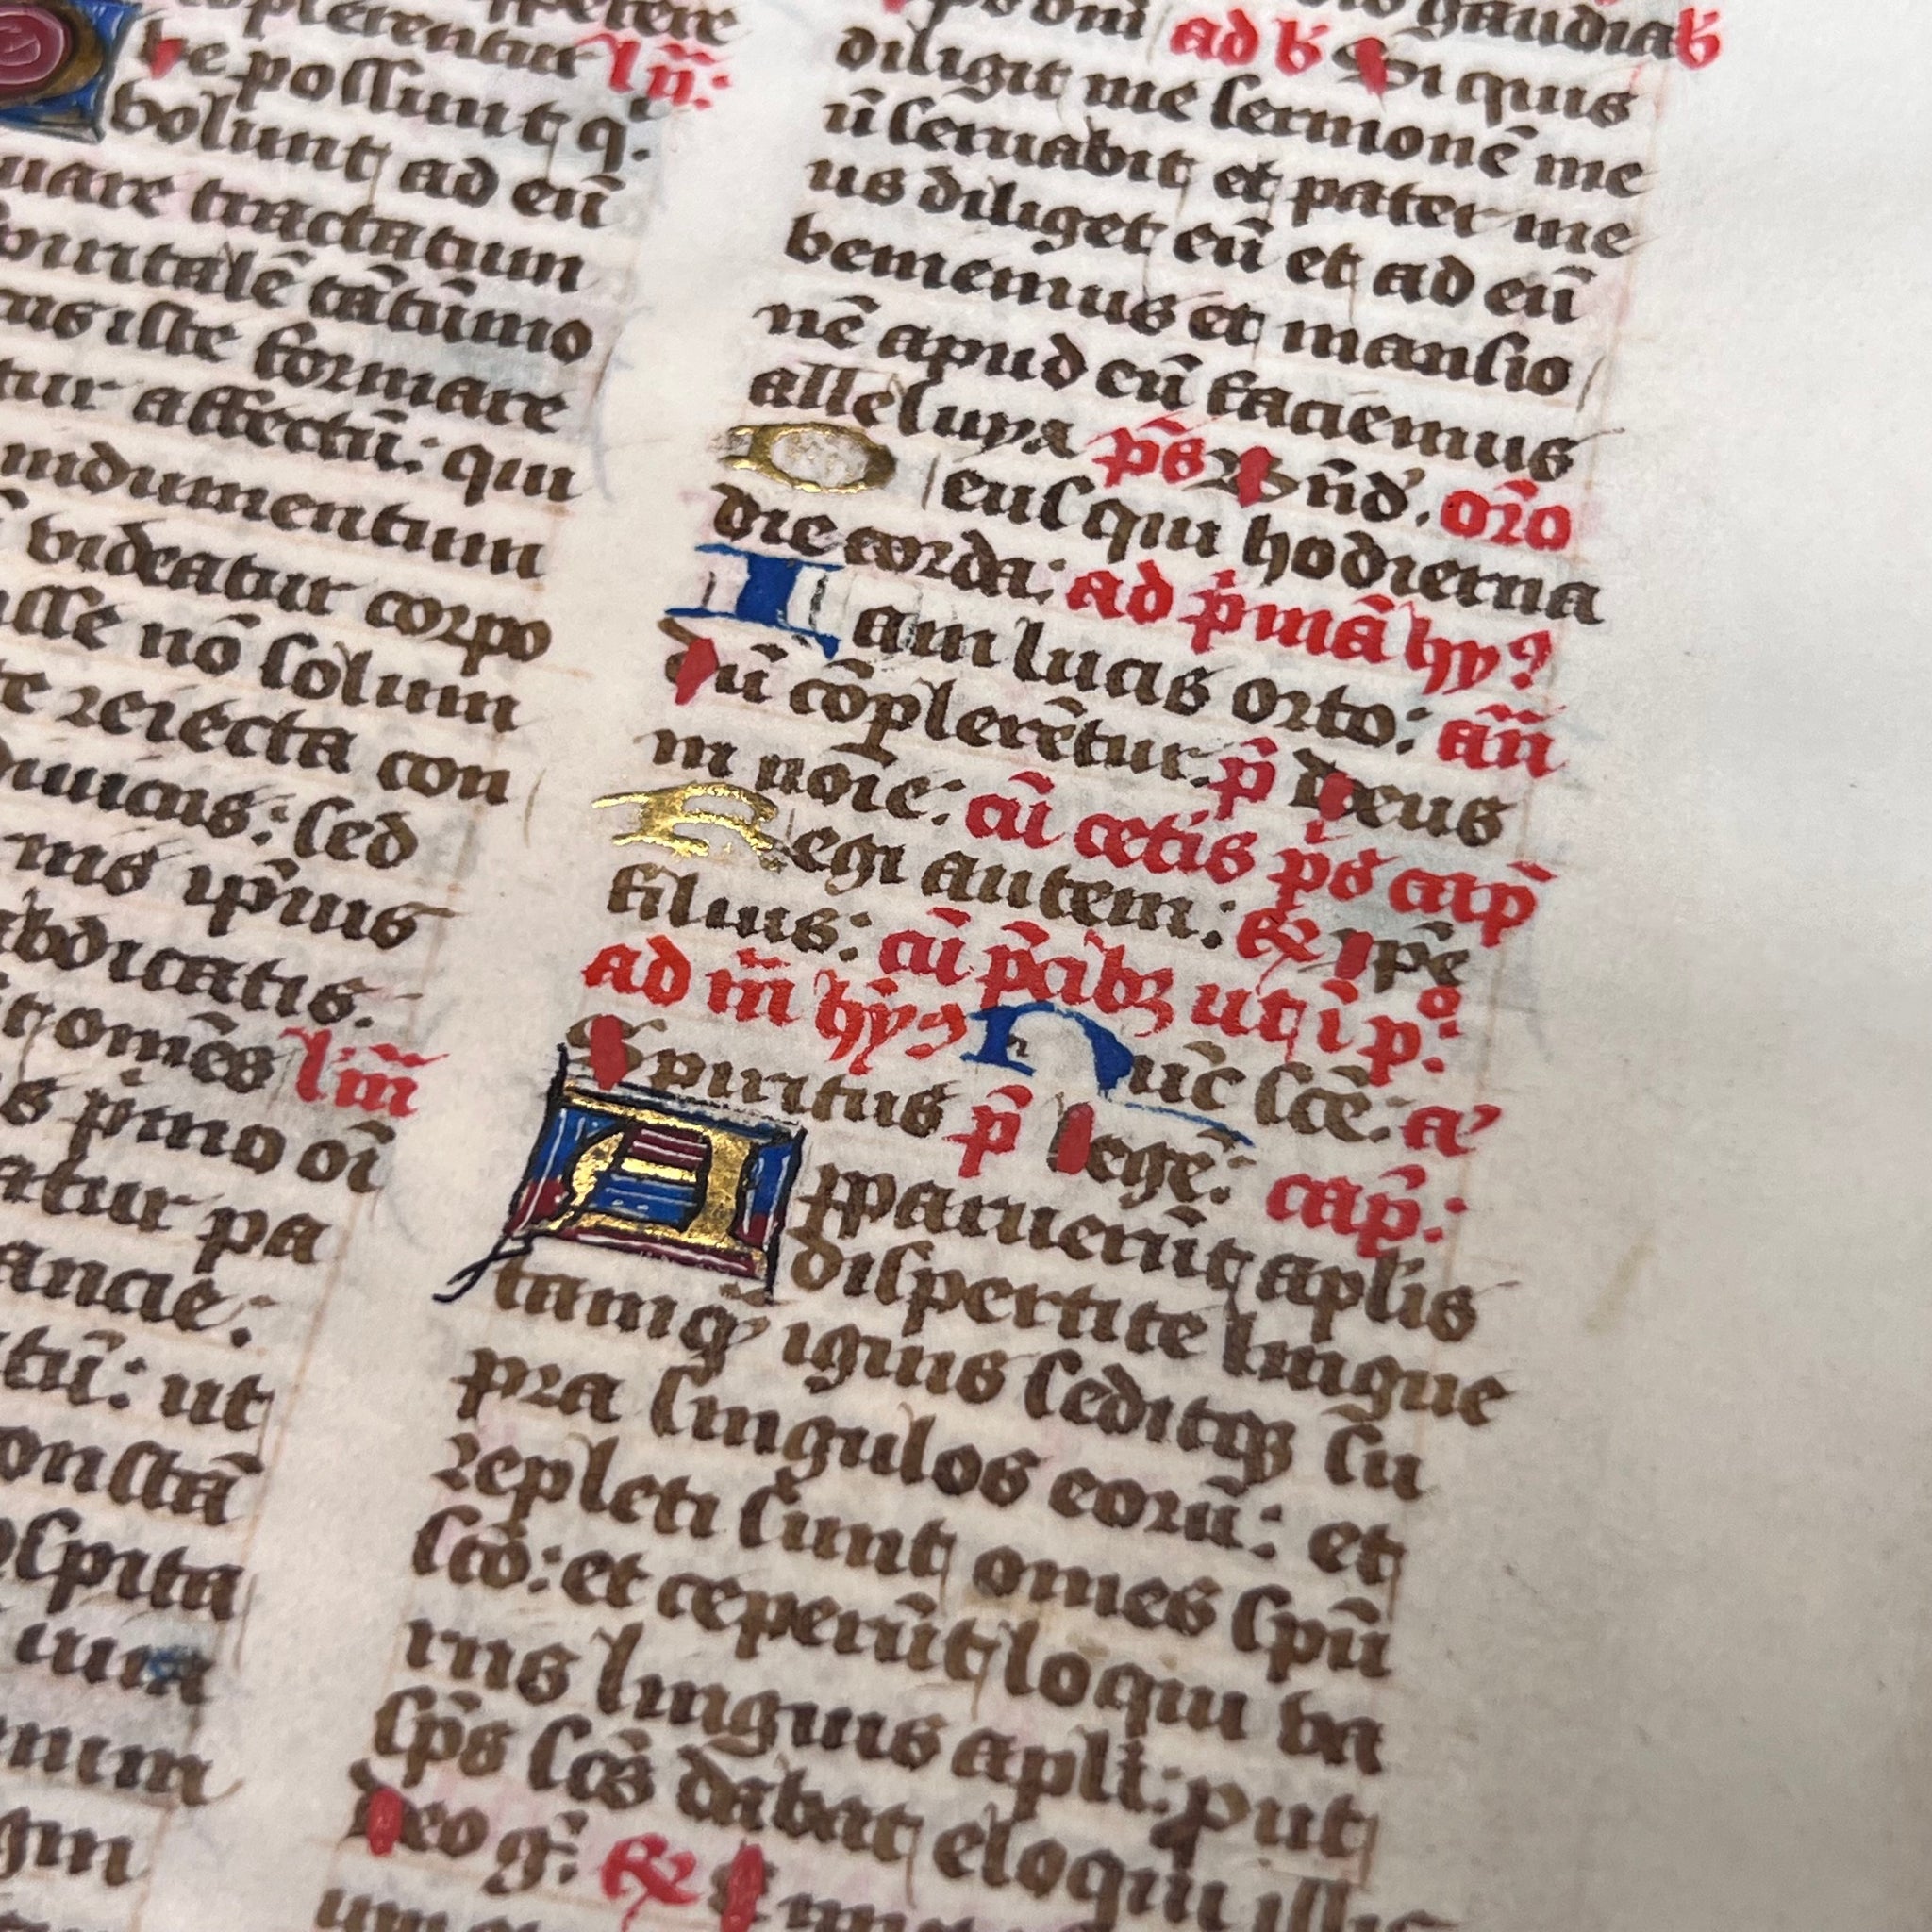 plerentur ln̄:
he possunt q̇.
volunt ad eū
uare tractatum
talē tātūmo
us iste formare
tur affectū: qui
indumentum
videatur corpo
sse nō solum
te reiecta con
sed
ms ip̄ius
abdicatis.
omēs lm̄
s pimo oī
atur pa
ancie:
tū: ut
onstā
spita
gaudia b
dn̄i ad b Si quis
diligit me sermonē me
ū seruabit et pater me
us diliget eū et ad eū
veniemus et mansio
nē apud eū faciemus
alleluya p̄s Bn̄d. or̄o
Deus qui hodierna
die corda: ad p̄mā hyꝰ
Iam lucis orto: an̄
Dū cōplerētur. p̄ Deus
in noīe: cū cetis p̄s cap̄
Regi autem: ℞ Ip̄e
filius: cū p̄cibꝫ ut i pͦ:
ad m̄ hyꝰ Nūc sc̄e: a
Spiritus p̄ legē: cap̄:
Apparuerūt aplis
dispertite lingue
tamq̄ ignis seditqꝫ su
pra singulos eorū: et
repleti sunt omes spū
sc̄o: et ceperūt loqui va
riis linguis apli: put
sp̄s sc̄s dabat eloqui illis
Deo ḡ: ℞